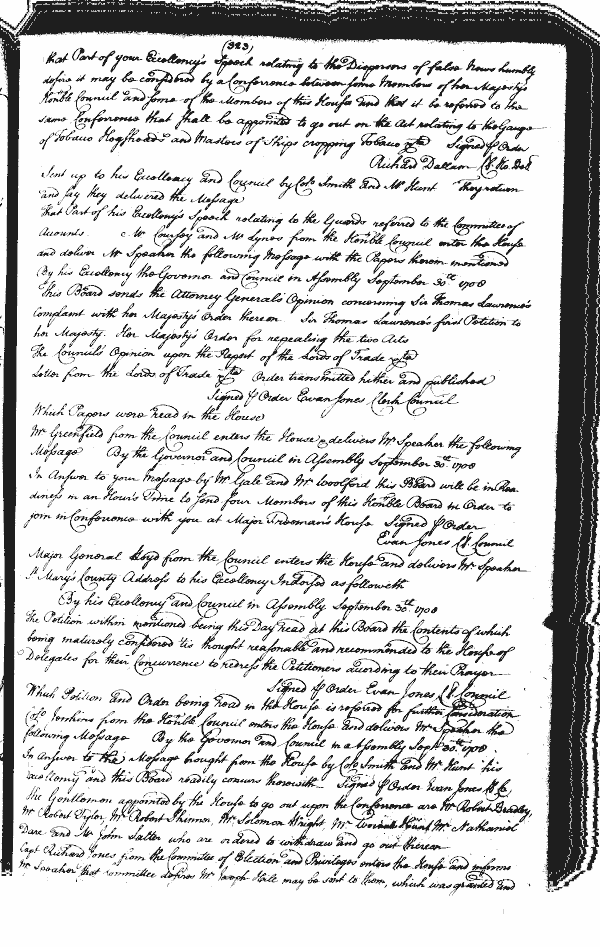 (323)
that Part of your Excellency's Speech relating to the Dispersers of false News humbly
desire it may be considered by a Conference between some Members of her Majesty's
Honble Council and some of the Members of this House and that it be referred to the
same Conference that shall be appointed to go out on the Act relating to the Gauge
of Tobacco Hogsheads and Masters of Ships cropping Tobacco &ca Signed p Order
Richard Dallam Cl. Ho. Del.
Sent up to his Excellency and Council by Colo Smith and Mr Hunt They return
and say they delivered the Message
That Part of his Excellency's Speech relating to the Guards referred to the Committee of
Accounts. Mr Coursey and Mr Lynes from the Honble Council enter the House
and deliver Mr Speaker the following Message with the Papers therein mentioned
By his Excellency the Governor and Council in Assembly September 30th 1708
This Board sends the Attorney General's Opinion concerning Sir Thomas Lawrence's
Complaint with her Majesty's Order therein Sir Thomas Lawrence's first Petition to
her Majesty. Her Majesty's Order for repealing the two Acts
The Council's Opinion upon the Report of the Lords of Trade &ca
Letter from the Lords of Trade &ca Order transmitted hither and published
Signed p Order Evan Jones Clerk Council
Which Papers were read in the House
Mr Greenfield from the Council enters the House & delivers Mr Speaker the following
Message By the Governor and Council in Assembly September 30th 1708
In Answer to your Message by Mr Gale and Mr Woolford this Board will be in Rea
diness in an Hour's Time to send four Members of this Honble Board in Order to
join in Conference with you at Major Freeman's House Signed p Order
Evan Jones Cl Council
Major General Lloyd from the Council enters the House and delivers Mr Speaker
St Mary's County Address to his Excellency Indorsed as followeth
By his Excellency and Council in Assembly September 30th 1708
The Petition within mentioned being this Day read at this Board the Contents of which
being maturely considered 'tis thought reasonable and recommended to the House of
Delegates for their Concurrence to redress the Petitioners according to their Prayer
Signed p Order Evan Jones Cl Council
Which Petition and Order being read in the House is referred for further Consideration
Colo Jenkins from the Honble Council enters the House and delivers Mr Speaker the
following Message By the Governor and Council in Assembly Septr 30th 1708
In Answer to the Message brought from the House by Colo Smith and Mr Hunt his
Excellency and this Board readily concurs therewith Signed p Order Evan Jones Cl Co.
The Gentlemen appointed by the House to go out upon the Conference are Mr Robert Bradley,
Mr Robert Tyler, Mr Robert Skinner, Mr Solomon Wright, Mr Hunt Mr Nathaniel
Dare and Mr John Salter who are ordered to withdraw and go out therein
Capt Richard Jones from the Committee of Election and Privileges enters the House and informs
Mr Speaker that Committee desires Mr Joseph Hill may be sent to them, which was granted and